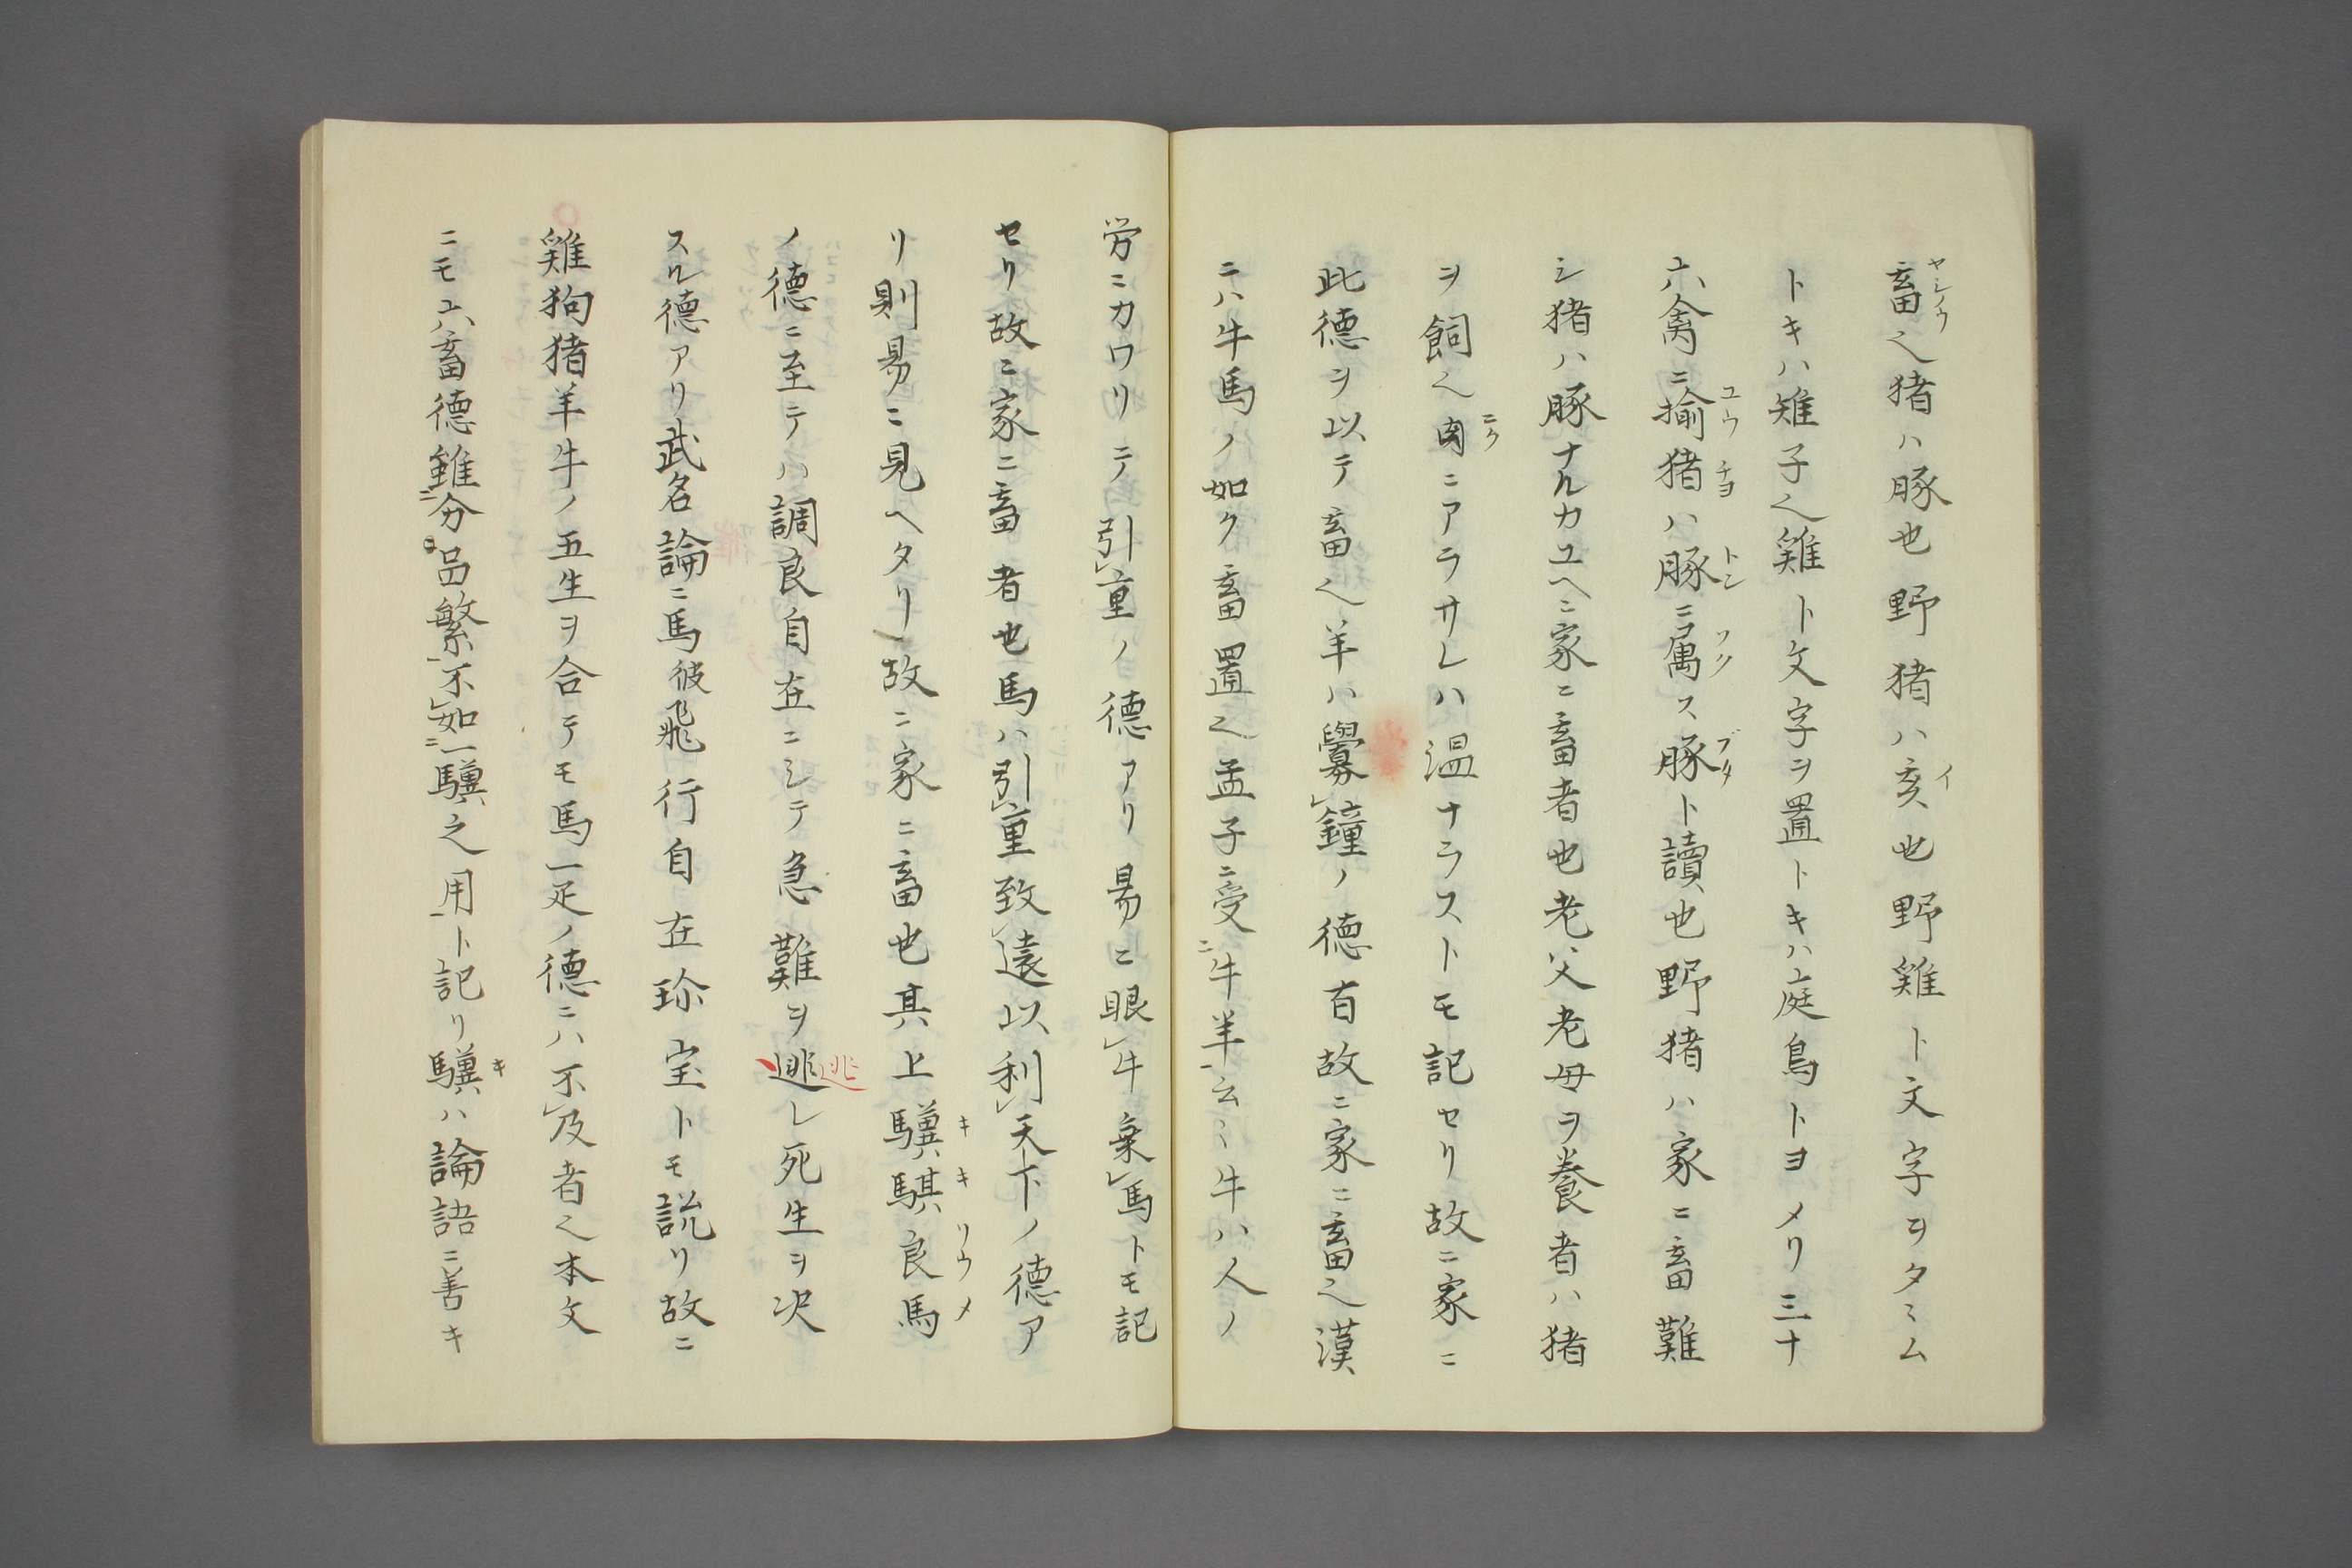 畜之猪ハ豚也野猪ハ亥也野雞ト文字ヲタヽム
トキハ雉子之雞ト文字ヲ置トキハ庭鳥トヨメリ三十
六禽ニ揄猪ハ豚ニ属ス豚ト讀也野猪ハ家ニ畜難
シ猪ハ豚ナルカユヘニ家ニ畜者也老父老母ヲ養者ハ猪
ヲ飼之肉ニアラサレハ温ナラストモ記セリ故ニ家ニ
此德ヲ以テ畜之羊ハ釁鐘ノ德有故ニ家ニ畜之漢
ニハ牛馬ノ如ク畜置之孟子ニ受牛羊云〻牛ハ人ノ
労ニカワリテ引重ノ德アリ易ニ服牛乗馬トモ記
セリ故ニ家ニ畜者也馬ハ引重致遠以利天下ノ德ア
リ則易ニ見ヘタリ故ニ家ニ畜也其上驥騏良馬
ノ德ニ至テハ調良自在ニシテ急難ヲ逃レ死生ヲ决
スル德アリ武名論ニ馬彼飛行自在珎宝トモ説リ故ニ
雞狗猪羊牛ノ五生ヲ合テモ馬一疋ノ德ニハ不及者之本文
ニモ六畜德雖分品繁不如一驥之用ト記リ驥ハ論語ニ善キ